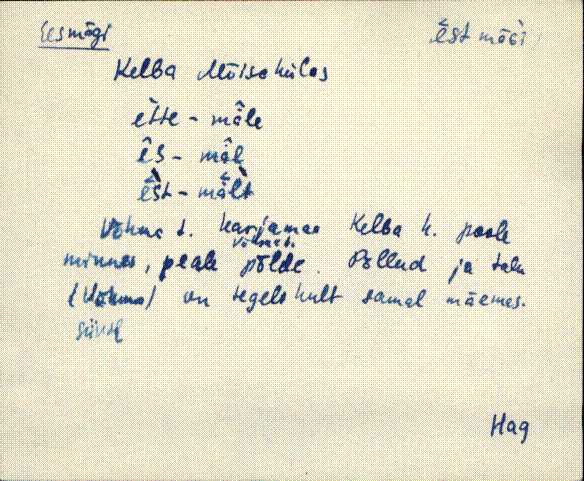 Eesmägi
ēst mäǵi
Kelba Mõisakülas
ètte - mäle
ês - mäl
ēst - mält
Võhma t. karjamaa Kelba k. poole
minnes, peale Võhma t. põlde. Põllud ja talu
(Võhma) on tegelikult samal mäemas-
siivil
Hag